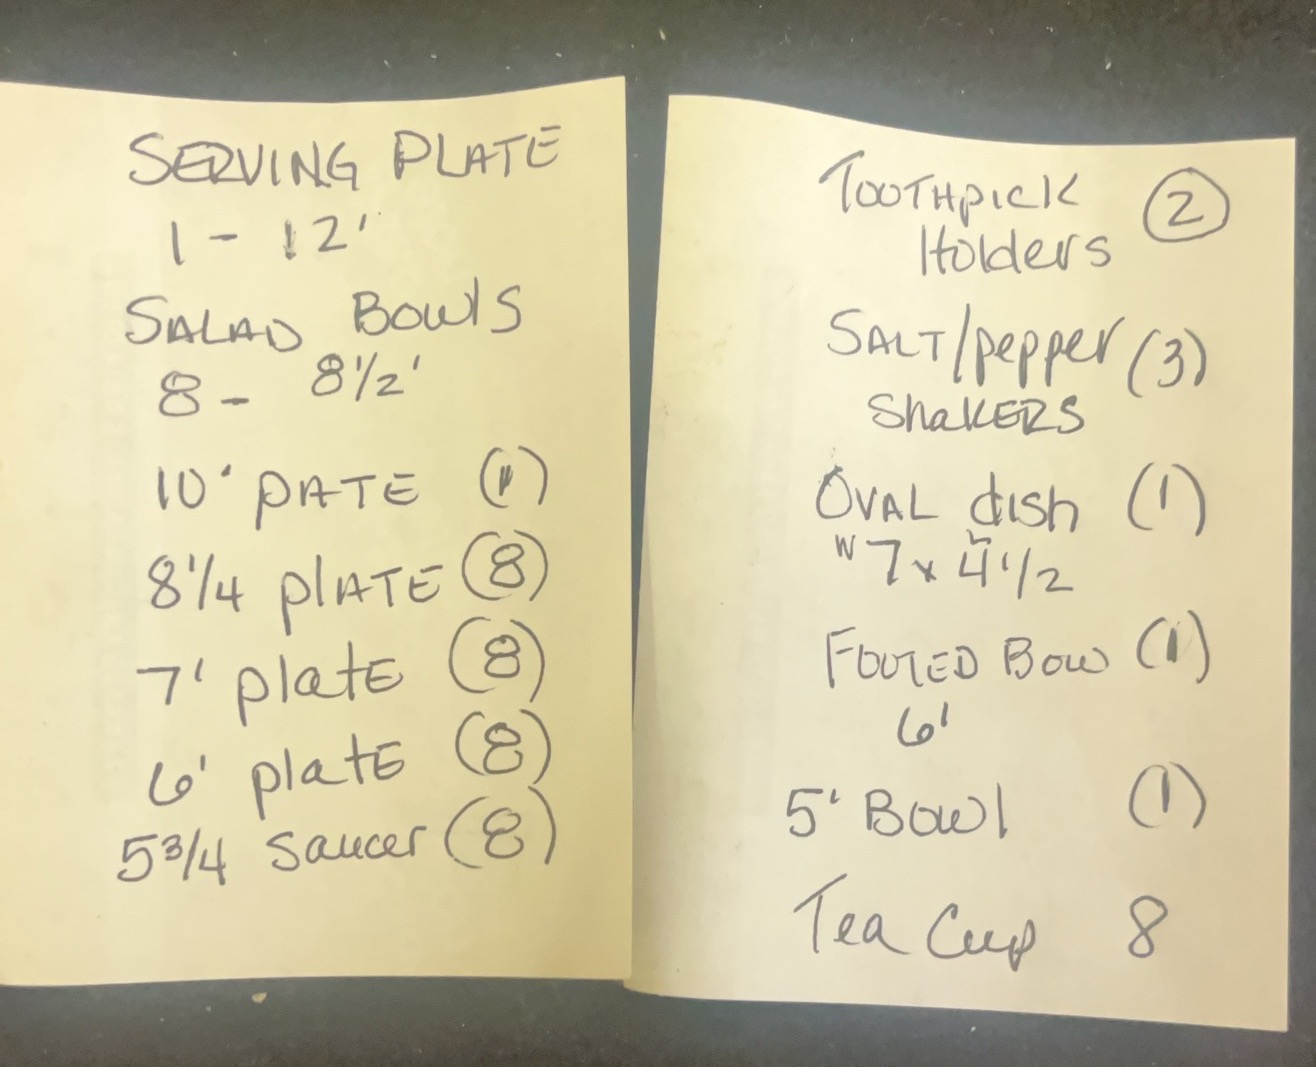 SERVING PLATE
1 - 12'
SALAD BOWlS
8 - 8 1/2'
10' PATE (1)
8 1/4 PlATE (8)
7' platE (8)
6' platE (8)
5 3/4 Saucer (8)
TOOTHPICK (2)
Holders
SALT/pepper (3)
ShaKERS
OVAL dish (1)
W 7 x L 4 1/2
FOOTED BOW (1)
6'
5' BOWl (1)
Tea Cup 8